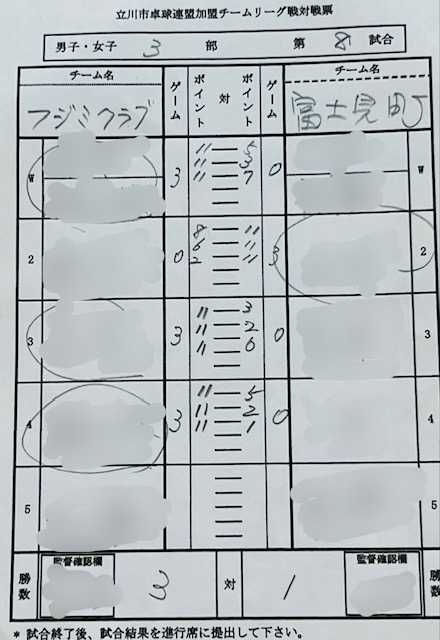 立川市卓球連盟加盟チームリーグ戦対戦票
男子・女子 3 部 第 8 試合
チーム名 ゲーム ポイント 対 ポイント ゲーム チーム名
フジミクラブ 富士見町
W 3 11 — 5 0 W
11 — 3
11 — 7
—
—
2 0 8 — 11 3 2
6 — 11
2 — 11
—
—
3 3 11 — 3 0 3
11 — 2
11 — 6
—
—
4 3 11 — 5 0 4
11 — 2
11 — 1
—
—
5 — 5
—
—
—
—
勝数 監督確認欄 3 対 1 監督確認欄 勝数
* 試合終了後、試合結果を進行席に提出して下さい。